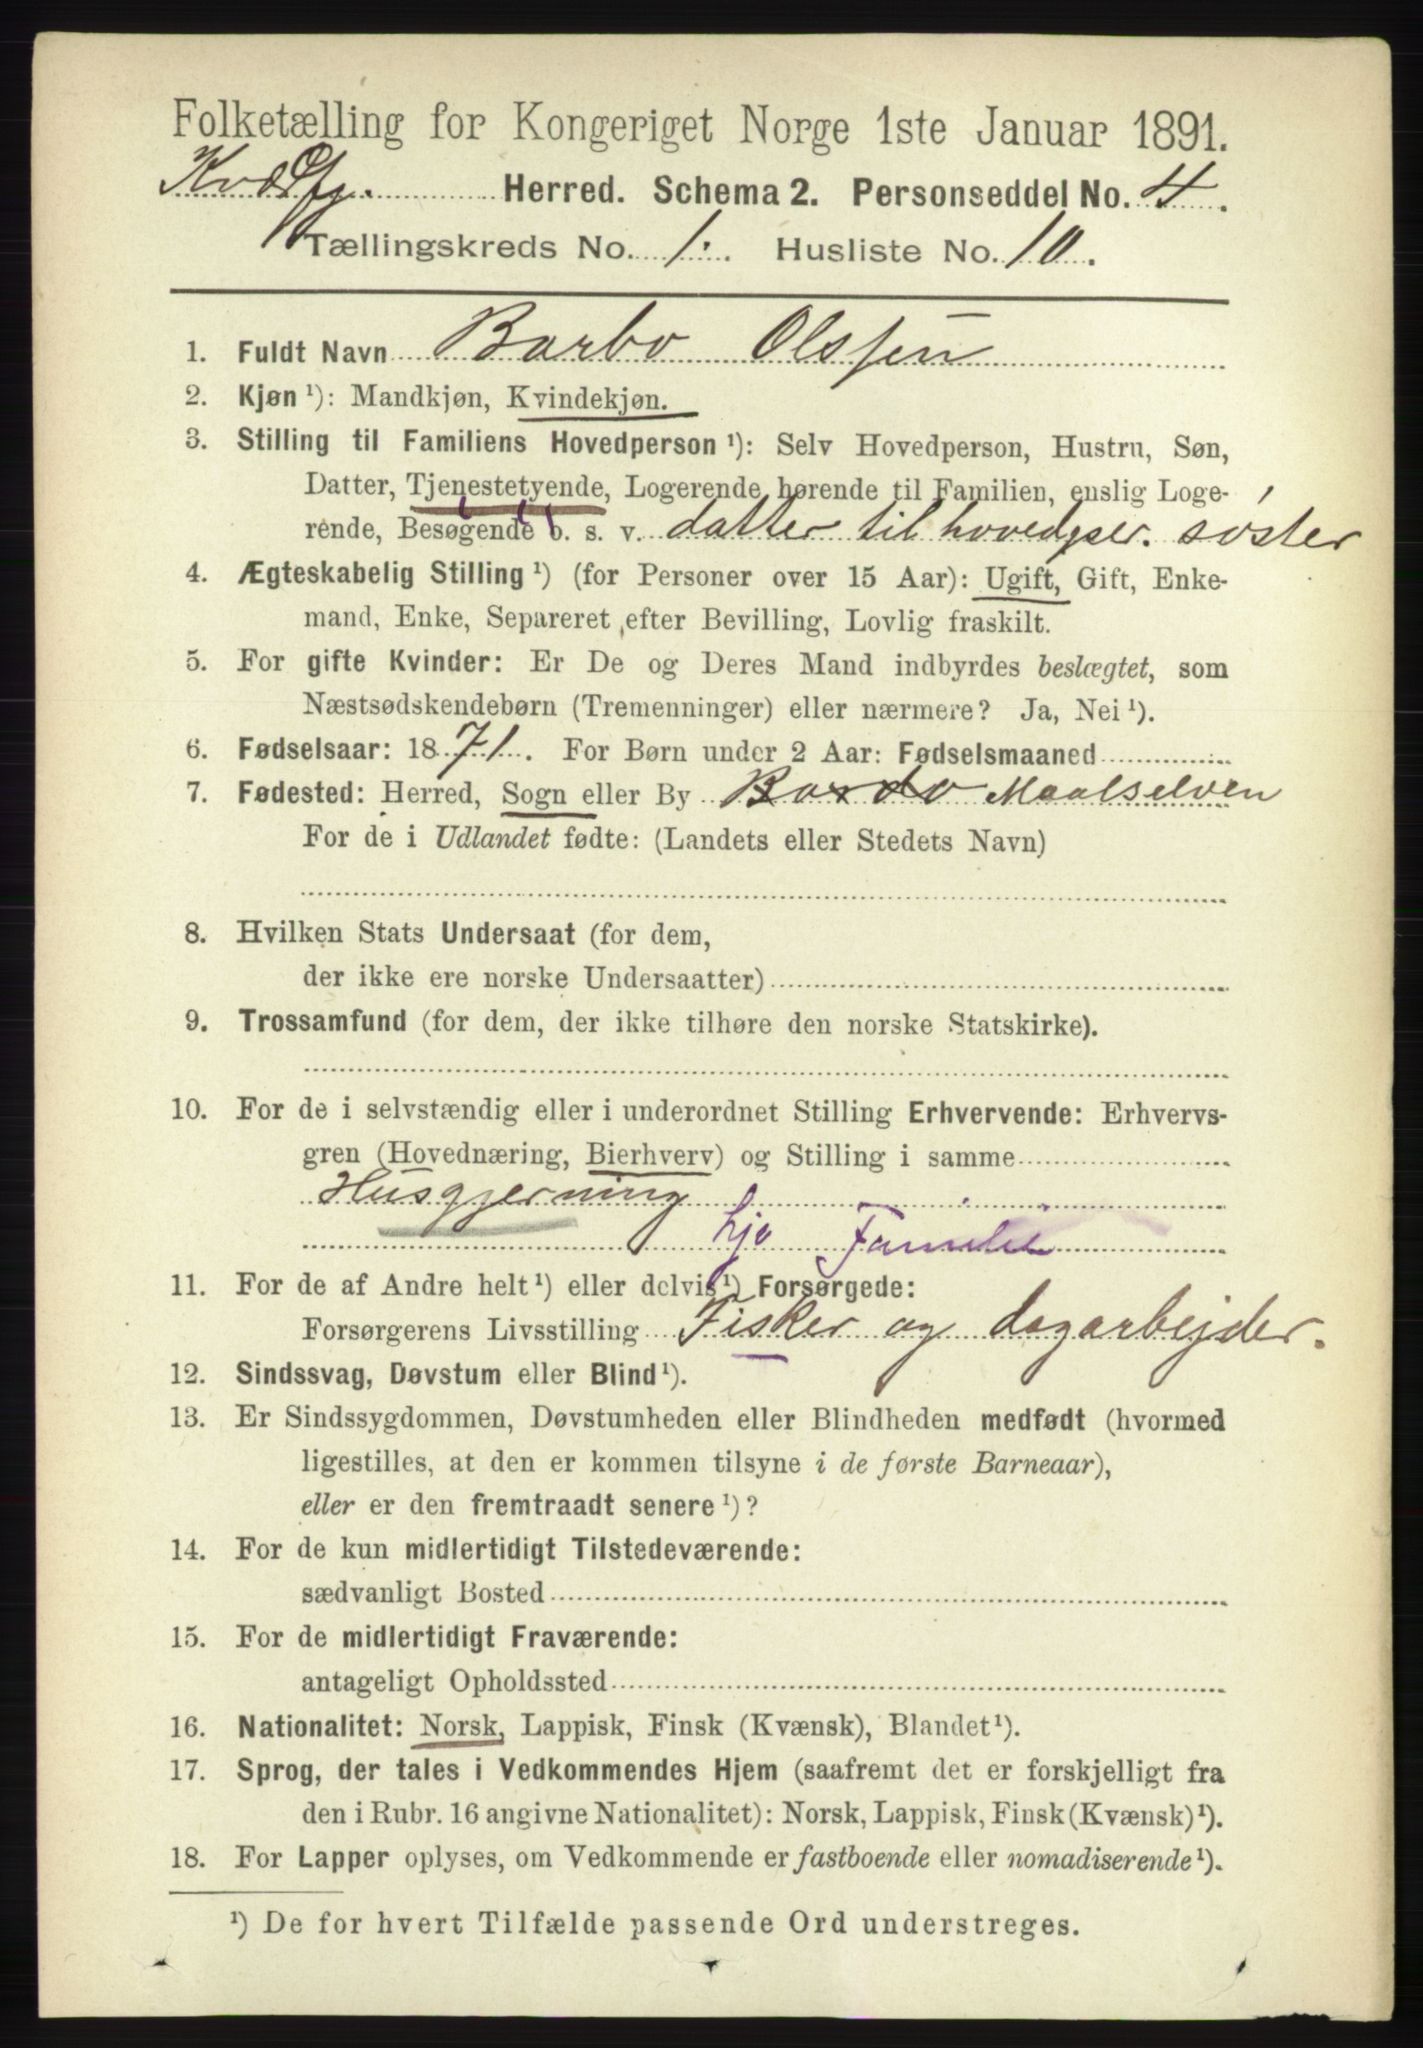 Folketælling for Kongeriget Norge 1ste Januar 1891.
Kvædfj. Herred. Schema 2. Personseddel No. 4.
Tællingskreds No. 1. Husliste No. 10.
1. Fuldt Navn Barbo Olsen
2. Kjøn ¹): Mandkjøn, Kvindekjøn.
3. Stilling til Familiens Hovedperson ¹): Selv Hovedperson, Hustru, Søn,
Datter, Tjenestetyende, Logerende hørende til Familien, enslig Loge-
rende, Besøgende o. s. v. datter til hovedper. søster
4. Ægteskabelig Stilling ¹) (for Personer over 15 Aar): Ugift, Gift, Enke-
mand, Enke, Separeret efter Bevilling, Lovlig fraskilt.
5. For gifte Kvinder: Er De og Deres Mand indbyrdes beslægtet, som
Næstsødskendebørn (Tremenninger) eller nærmere? Ja, Nei ¹).
6. Fødselsaar: 1871. For Børn under 2 Aar: Fødselsmaaned
7. Fødested: Herred, Sogn eller By Bardo Maalselven
For de i Udlandet fødte: (Landets eller Stedets Navn)
8. Hvilken Stats Undersaat (for dem,
der ikke ere norske Undersaatter)
9. Trossamfund (for dem, der ikke tilhøre den norske Statskirke).
10. For de i selvstændig eller i underordnet Stilling Erhvervende: Erhvervs-
gren (Hovednæring, Bierhverv) og Stilling i samme
Husgjerning
hjo Familie
11. For de af Andre helt ¹) eller delvis ¹) Forsørgede:
Forsørgerens Livsstilling Fisker og dagarbejder.
12. Sindssvag, Døvstum eller Blind ¹).
13. Er Sindssygdommen, Døvstumheden eller Blindheden medfødt (hvormed
ligestilles, at den er kommen tilsyne i de første Barneaar),
eller er den fremtraadt senere ¹)?
14. For de kun midlertidigt Tilstedeværende:
sædvanligt Bosted
15. For de midlertidigt Fraværende:
antageligt Opholdssted
16. Nationalitet: Norsk, Lappisk, Finsk (Kvænsk), Blandet ¹).
17. Sprog, der tales i Vedkommendes Hjem (saafremt det er forskjelligt fra
den i Rubr. 16 angivne Nationalitet): Norsk, Lappisk, Finsk (Kvænsk) ¹).
18. For Lapper oplyses, om Vedkommende er fastboende eller nomadiserende ¹).
¹) De for hvert Tilfælde passende Ord understreges.